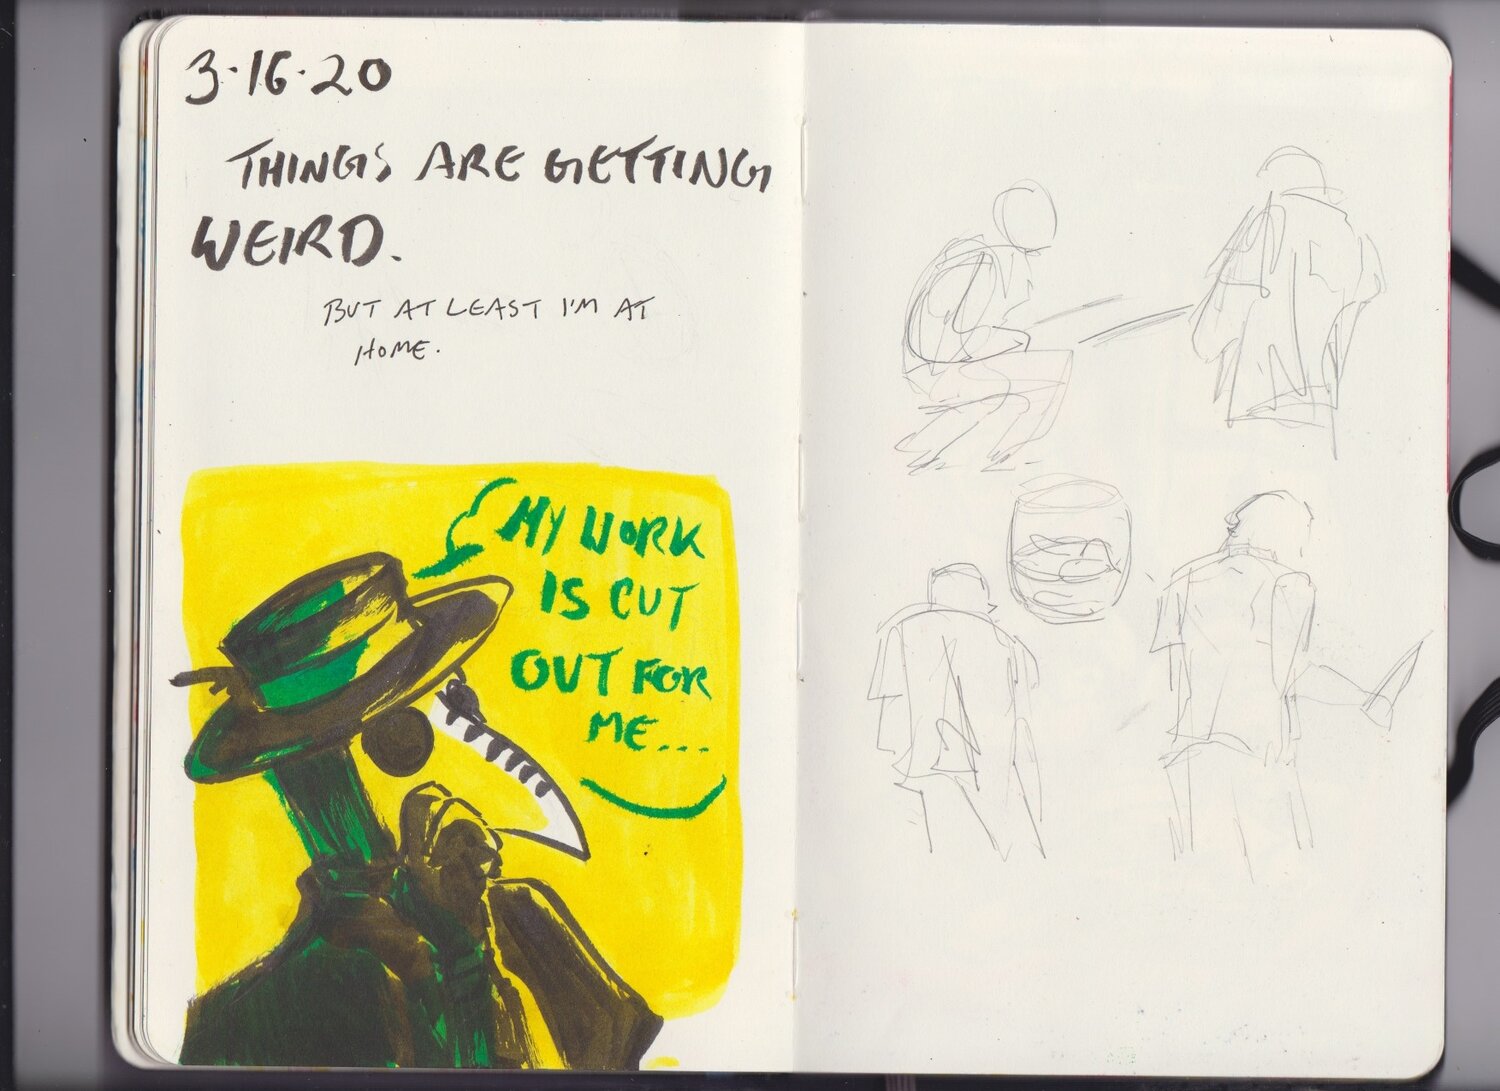 3·16·20
THINGS ARE GETTING
WEIRD.
BUT AT LEAST I'M AT
HOME.
MY WORK
IS CUT
OUT FOR
ME...